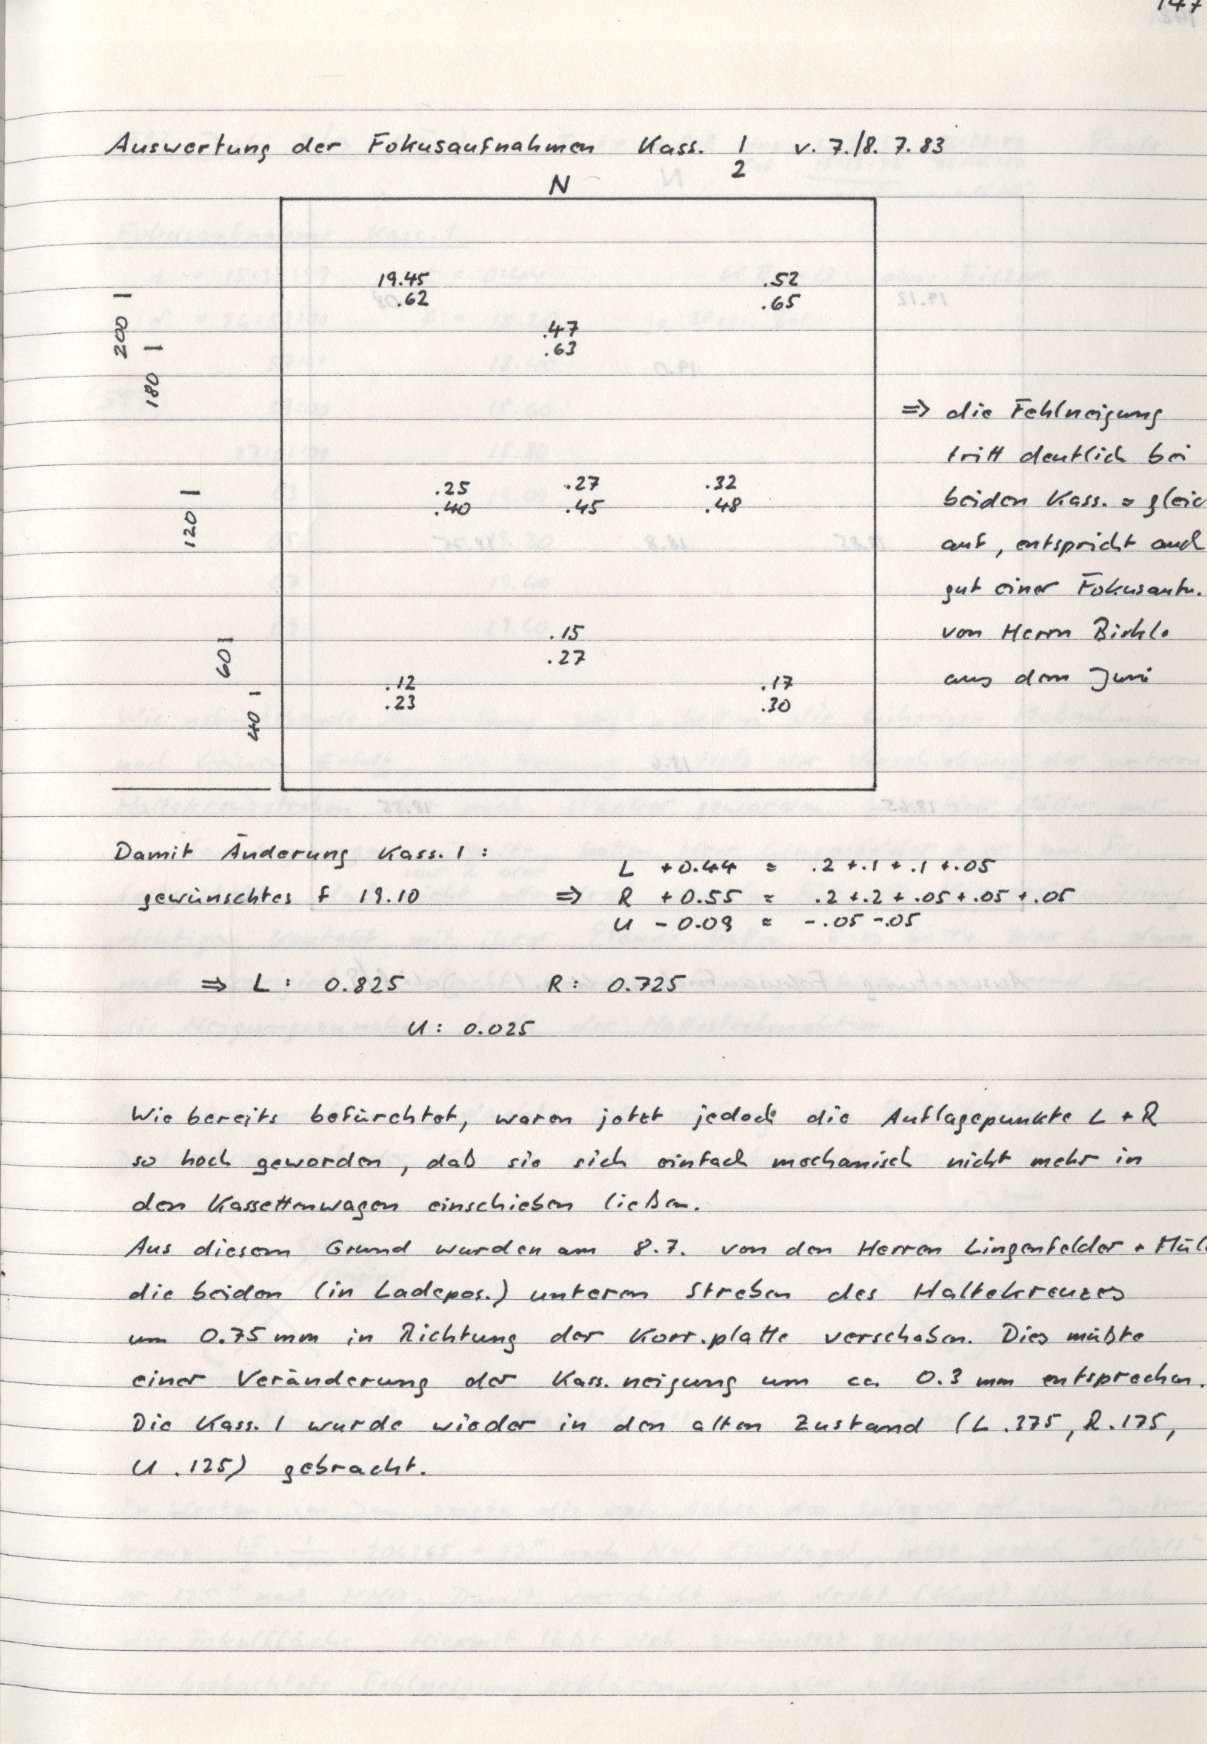 147
Auswertung der Fokusaufnahmen Kass. 1 v. 7./8.7.83
2
N
19.45 .52
.62 .65
.47
.63
200
180
.25 .27 .32
.40 .45 .48
120
.15
.27
60
.12 .17
.23 .30
40
⇒ die Fehlneigung
tritt deutlich bei
beiden Kass. = gleic
auf, entspricht auch
gut einer Fokusaufn.
von Herrn Birkle
aus dem Juni
Damit Änderung Kass. 1:
gewünschtes f 19.10
L +0.44 = .2 +.1 +.1 +.05
⇒ R +0.55 = .2 +.2 +.05 +.05 +.05
U -0.09 = -.05 -.05
⇒ L: 0.825 R: 0.725
U: 0.025
Wie bereits befürchtet, waren jetzt jedoch die Auflagepunkte L + R
so hoch geworden, daß sie sich einfach mechanisch nicht mehr in
den Kassettenwagen einschieben ließen.
Aus diesem Grund wurden am 8.7. von den Herren Lingenfelder + Mül
die beiden (in Ladepos.) unteren Streben des Haltekreuzes
um 0.75 mm in Richtung der Korr.platte verschoben. Dies müßte
einer Veränderung der Kass.neigung um ca 0.3 mm entsprechen.
Die Kass. 1 wurde wieder in den alten Zustand (L .375, R .175,
U .125) gebracht.